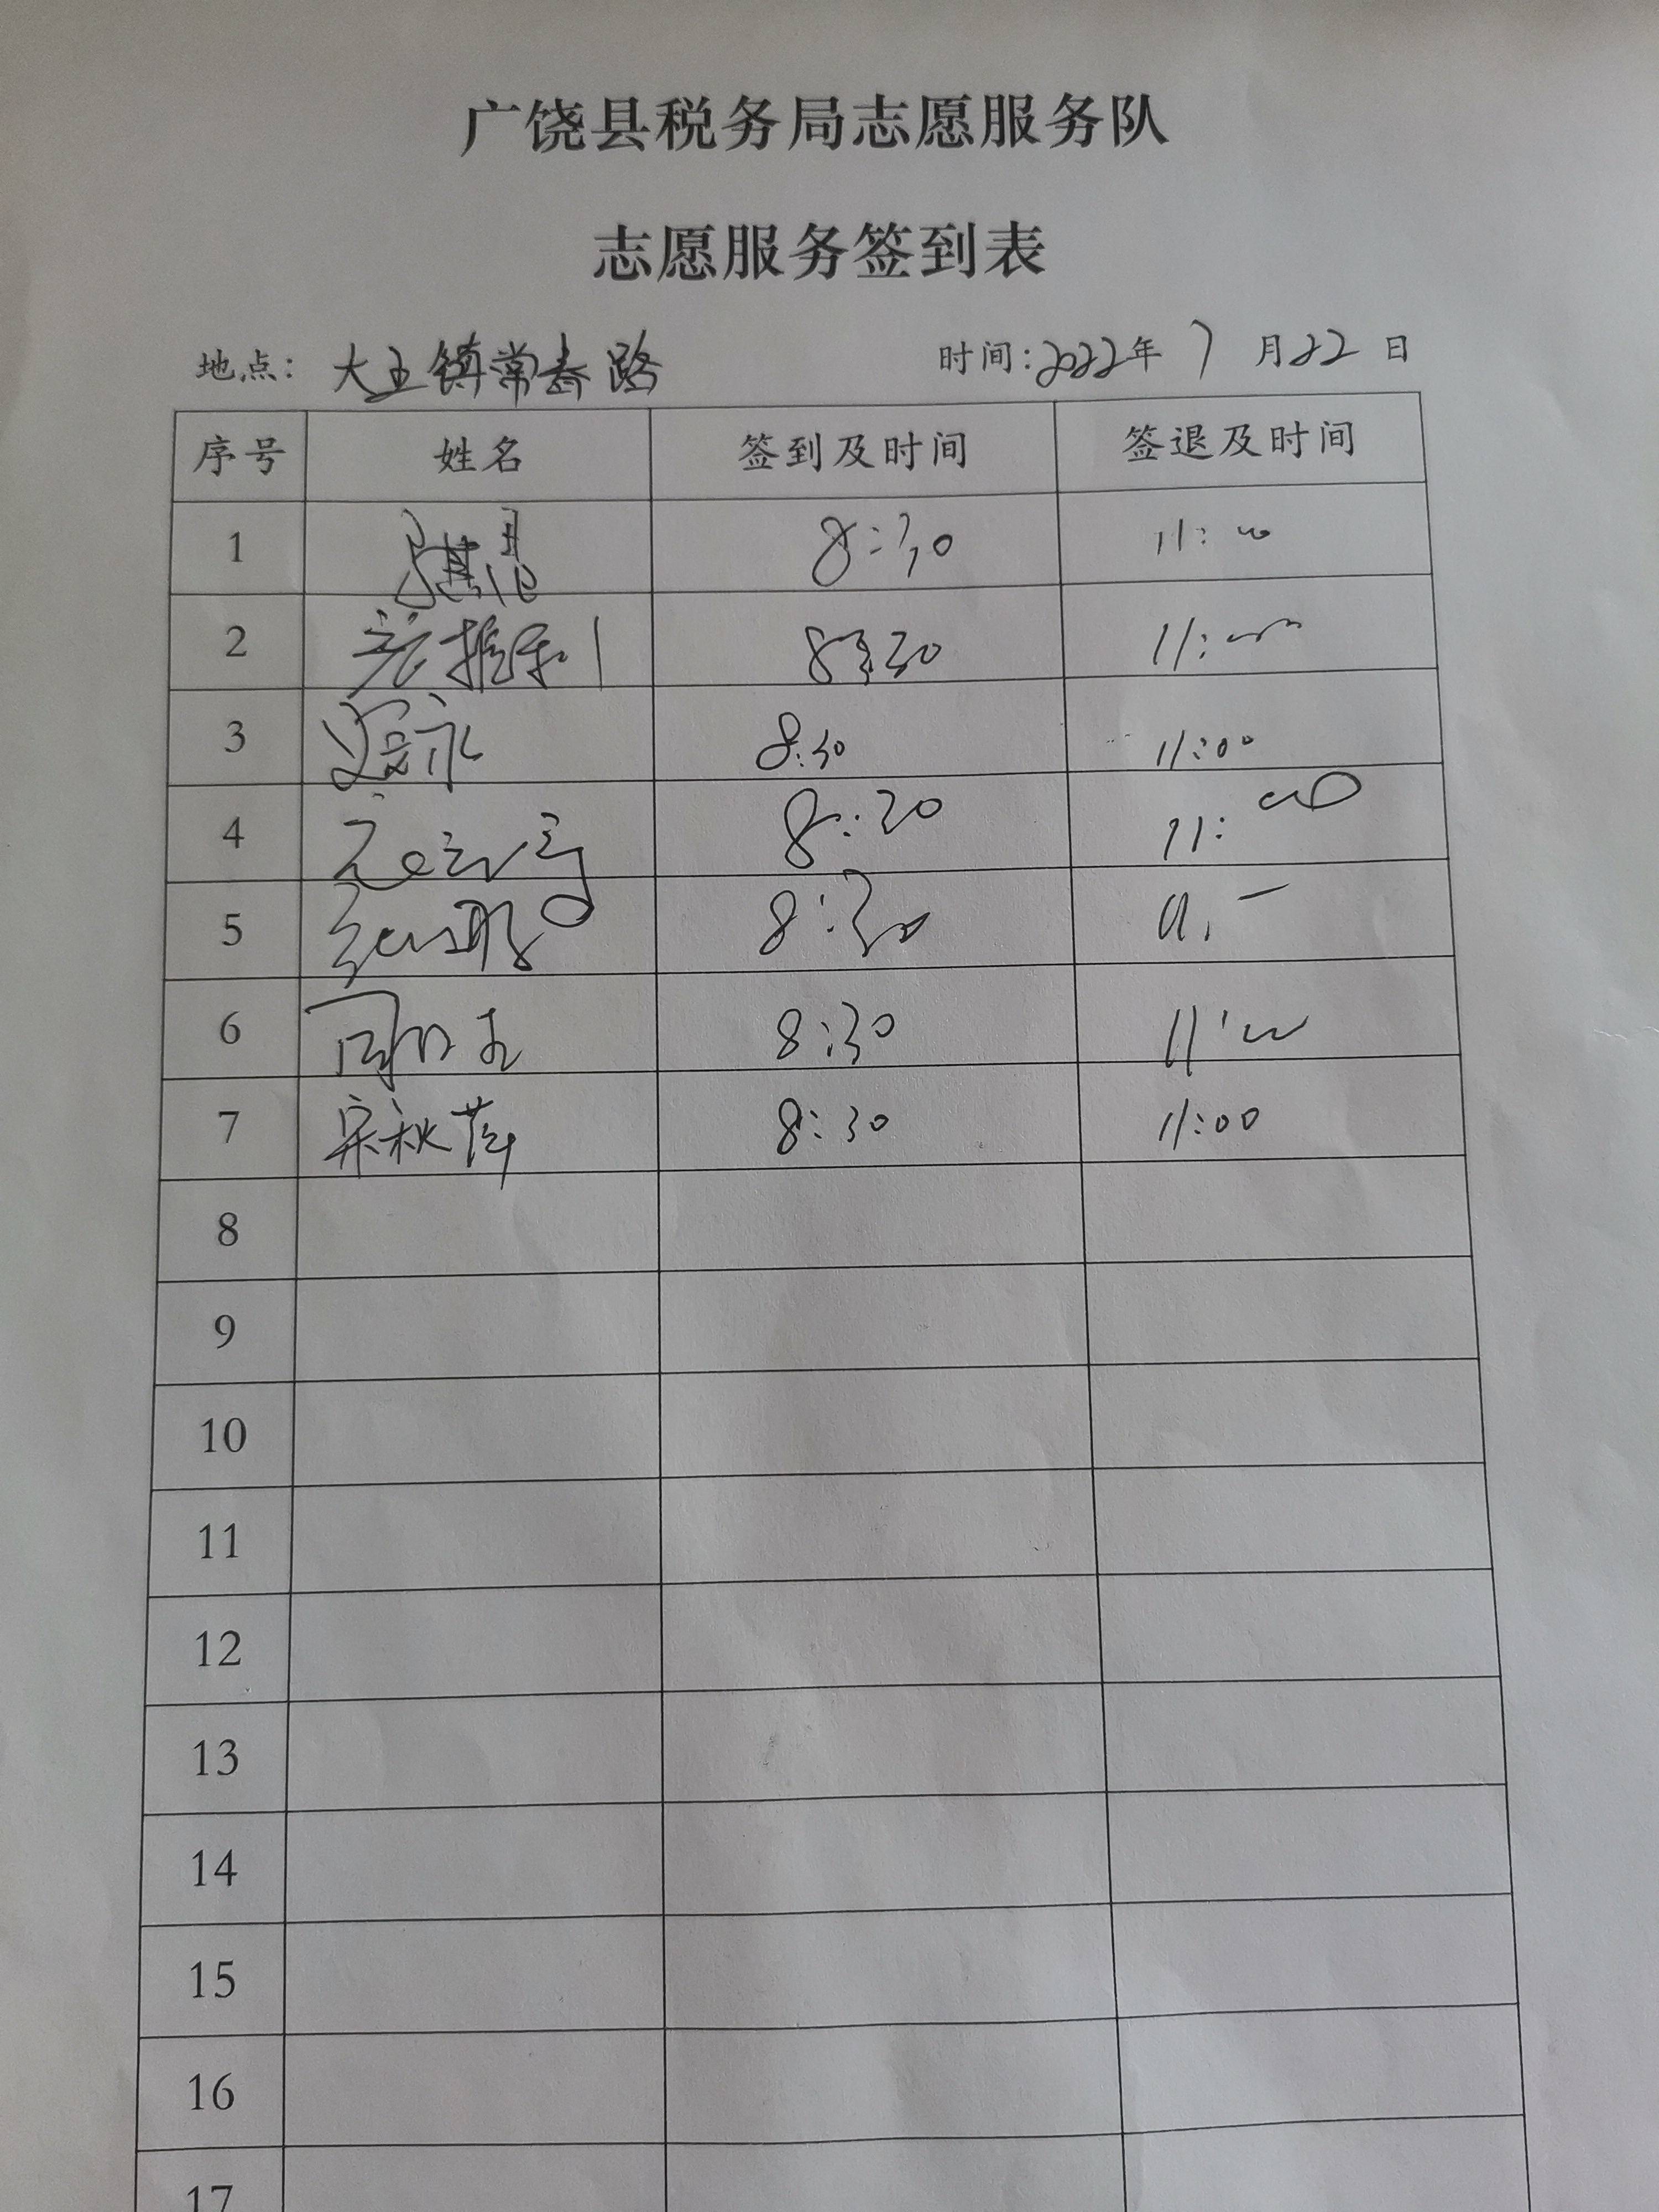 广饶县税务局志愿服务队
志愿服务签到表
地点: 大王镇常春路 时间:2022年 7 月22 日
序号 姓名 签到及时间 签退及时间
1 8:30 11:00
2 8:30 11:00
3 8:30 11:00
4 8:30 11:00
5 8:30
6 8:30 11:00
7 宋秋萍 8:30 11:00
8
9
10
11
12
13
14
15
16
17